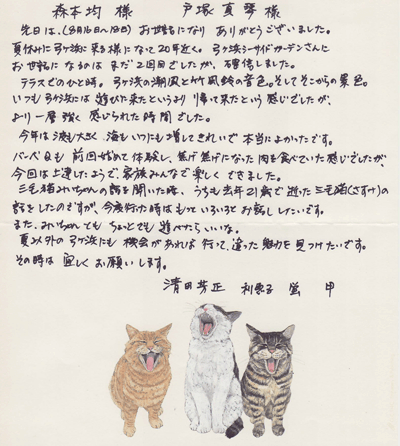 森本均様 戸塚真琴様
先日は、(8月16日〜18日) お世話になり ありがとうございました。
夏休みに弓ヶ浜に来る様になって20年近く。弓ヶ浜シーサイドガーデンさんに
お世話になるのは まだ2回目でしたが、確信しました。
テラスでのひと時。弓ヶ浜の潮風と竹風鈴の音色。そしてそこからの景色。
いつも弓ヶ浜には 遊びに来たというより 帰って来たという感じでしたが、
より一層 強く 感じられた時間でした。
今年は波も大きく 海もいつにも増してきれいで本当によかったです。
バーベQも 前回始めて体験し、焦げ焦げになった肉を食べていた感じでしたが、
今回は上達したようで、家族みんなで楽しくできました。
三毛猫みいちゃんの話を聞いた時、うちも去年21歳で逝った三毛猫(さすけ)の
話をしたのですが、今度行った時はもっといろいろとお話ししたいです。
また、みいちゃんとも ちょっとでも遊べたらいいな。
夏以外の弓ヶ浜にも 機会があれば 行って、違った魅力を見つけたいです。
その時は 宜しくお願いします。
清田芳正 利恵子 蛍 甲